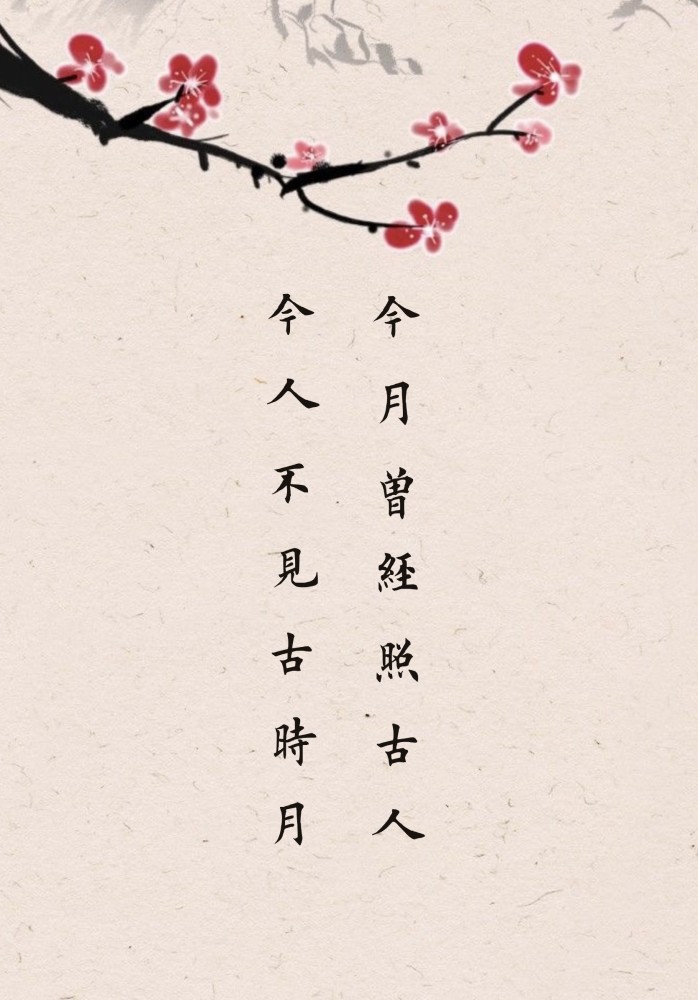 今月曾經照古人
今人不見古時月